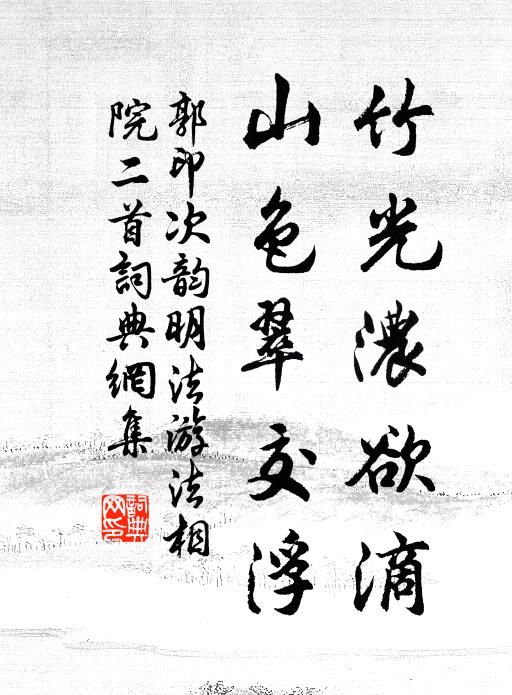 竹光濃欲滴
山色翠交浮
郭印次韵明法游法相
院二首詞典網集
詞典
网印